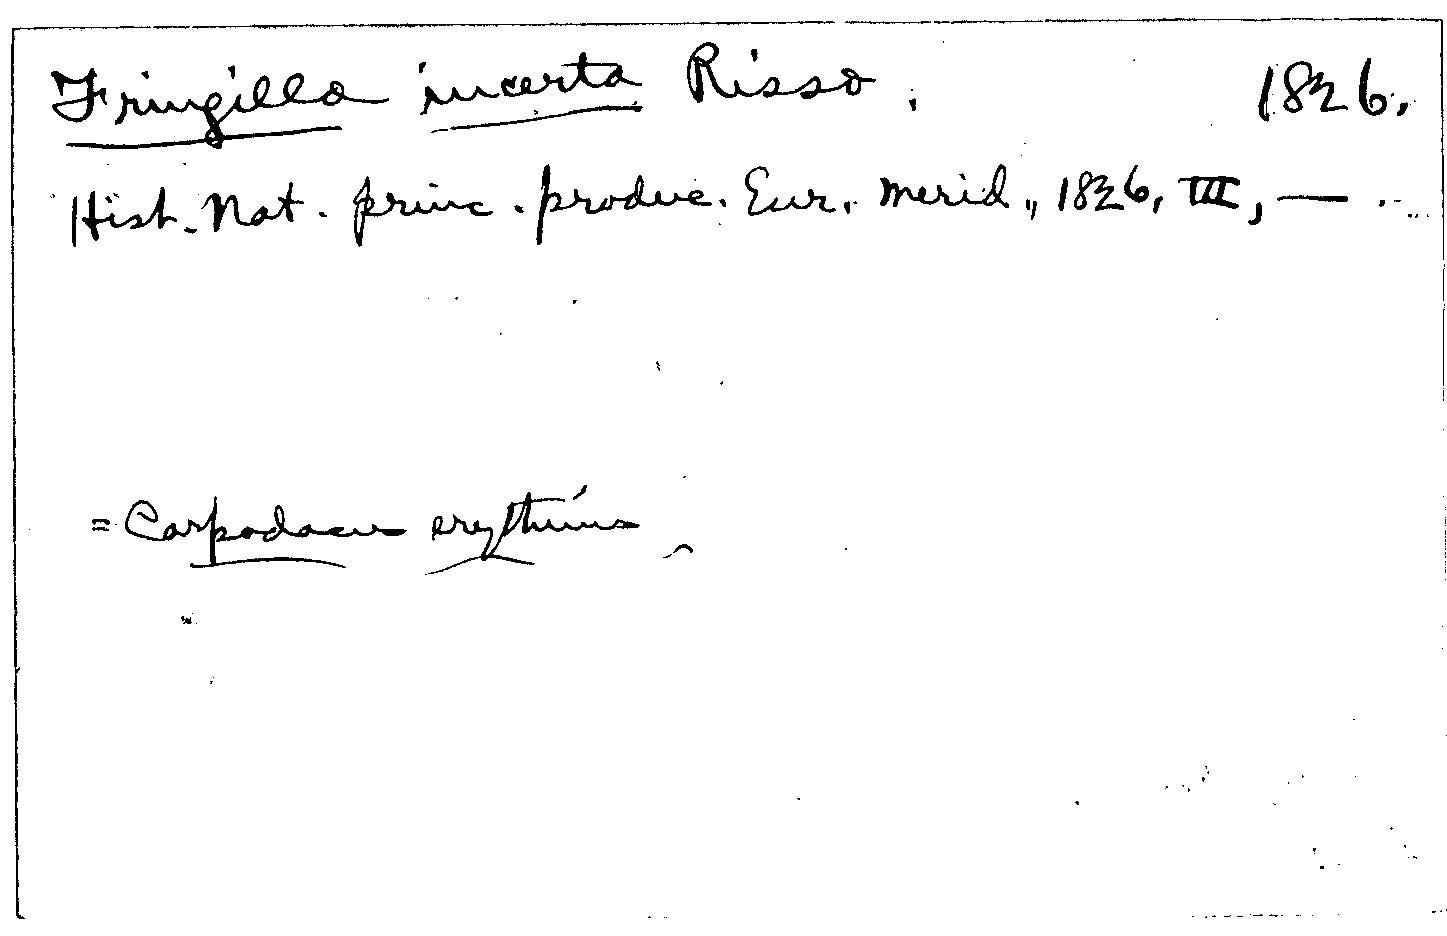 Fringilla incerta Risso. 1826.
Hist. Nat. princ. produc. Eur. merid., 1826, III, —
= Carpodacus erythrinus